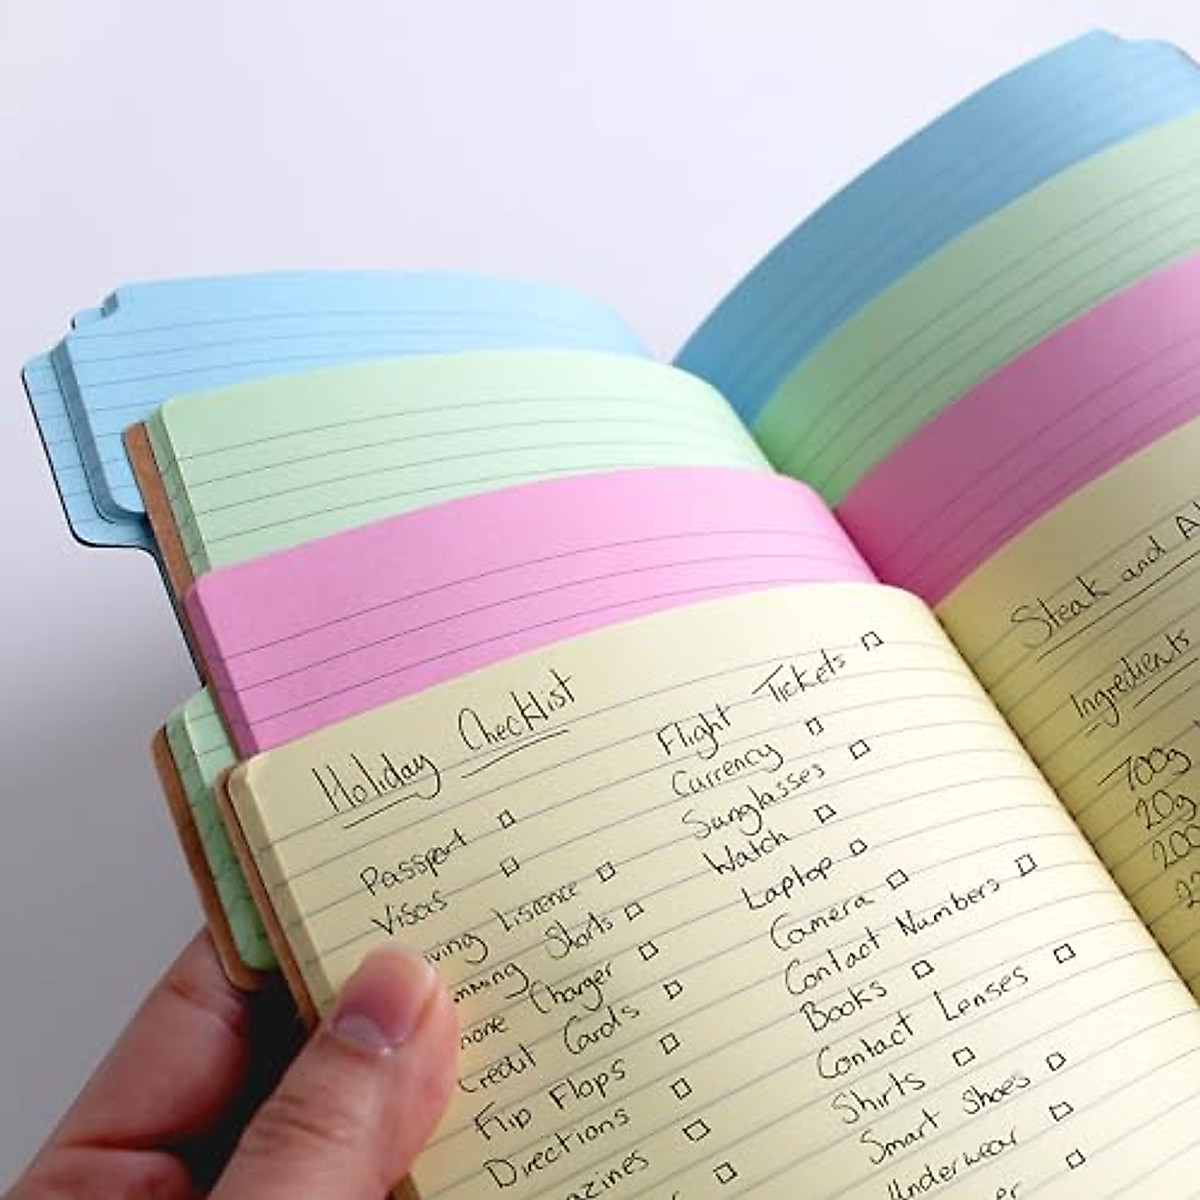 Holiday Checklist
Passport
Visas
iving Liscence
mming Shorts
hone Charger
Credit Cards
Flip Flops
Directions
azines
Flight Tickets
Currency
Sunglasses
Watch
Laptop
Camera
Contact Numbers
Books
Contact Lenses
Shirts
Smart Shoes
Underwear
er
Steak and Al
Ingredients
700g
20g
200